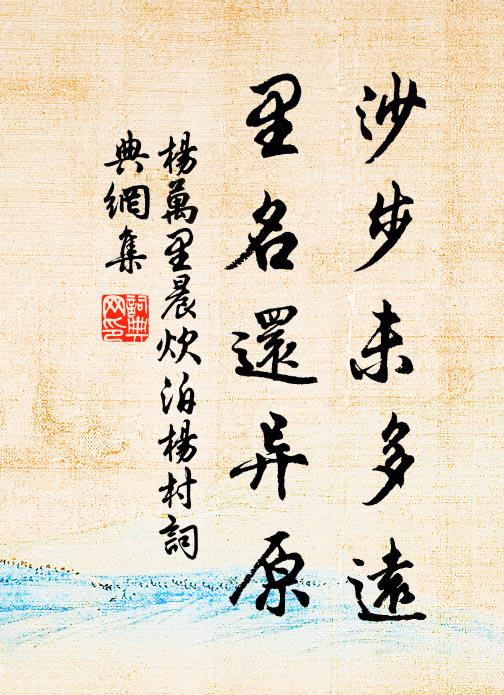 沙步未多遠
里名還异原
楊萬里晨炊泊楊村詞
典網集
詞典
网印